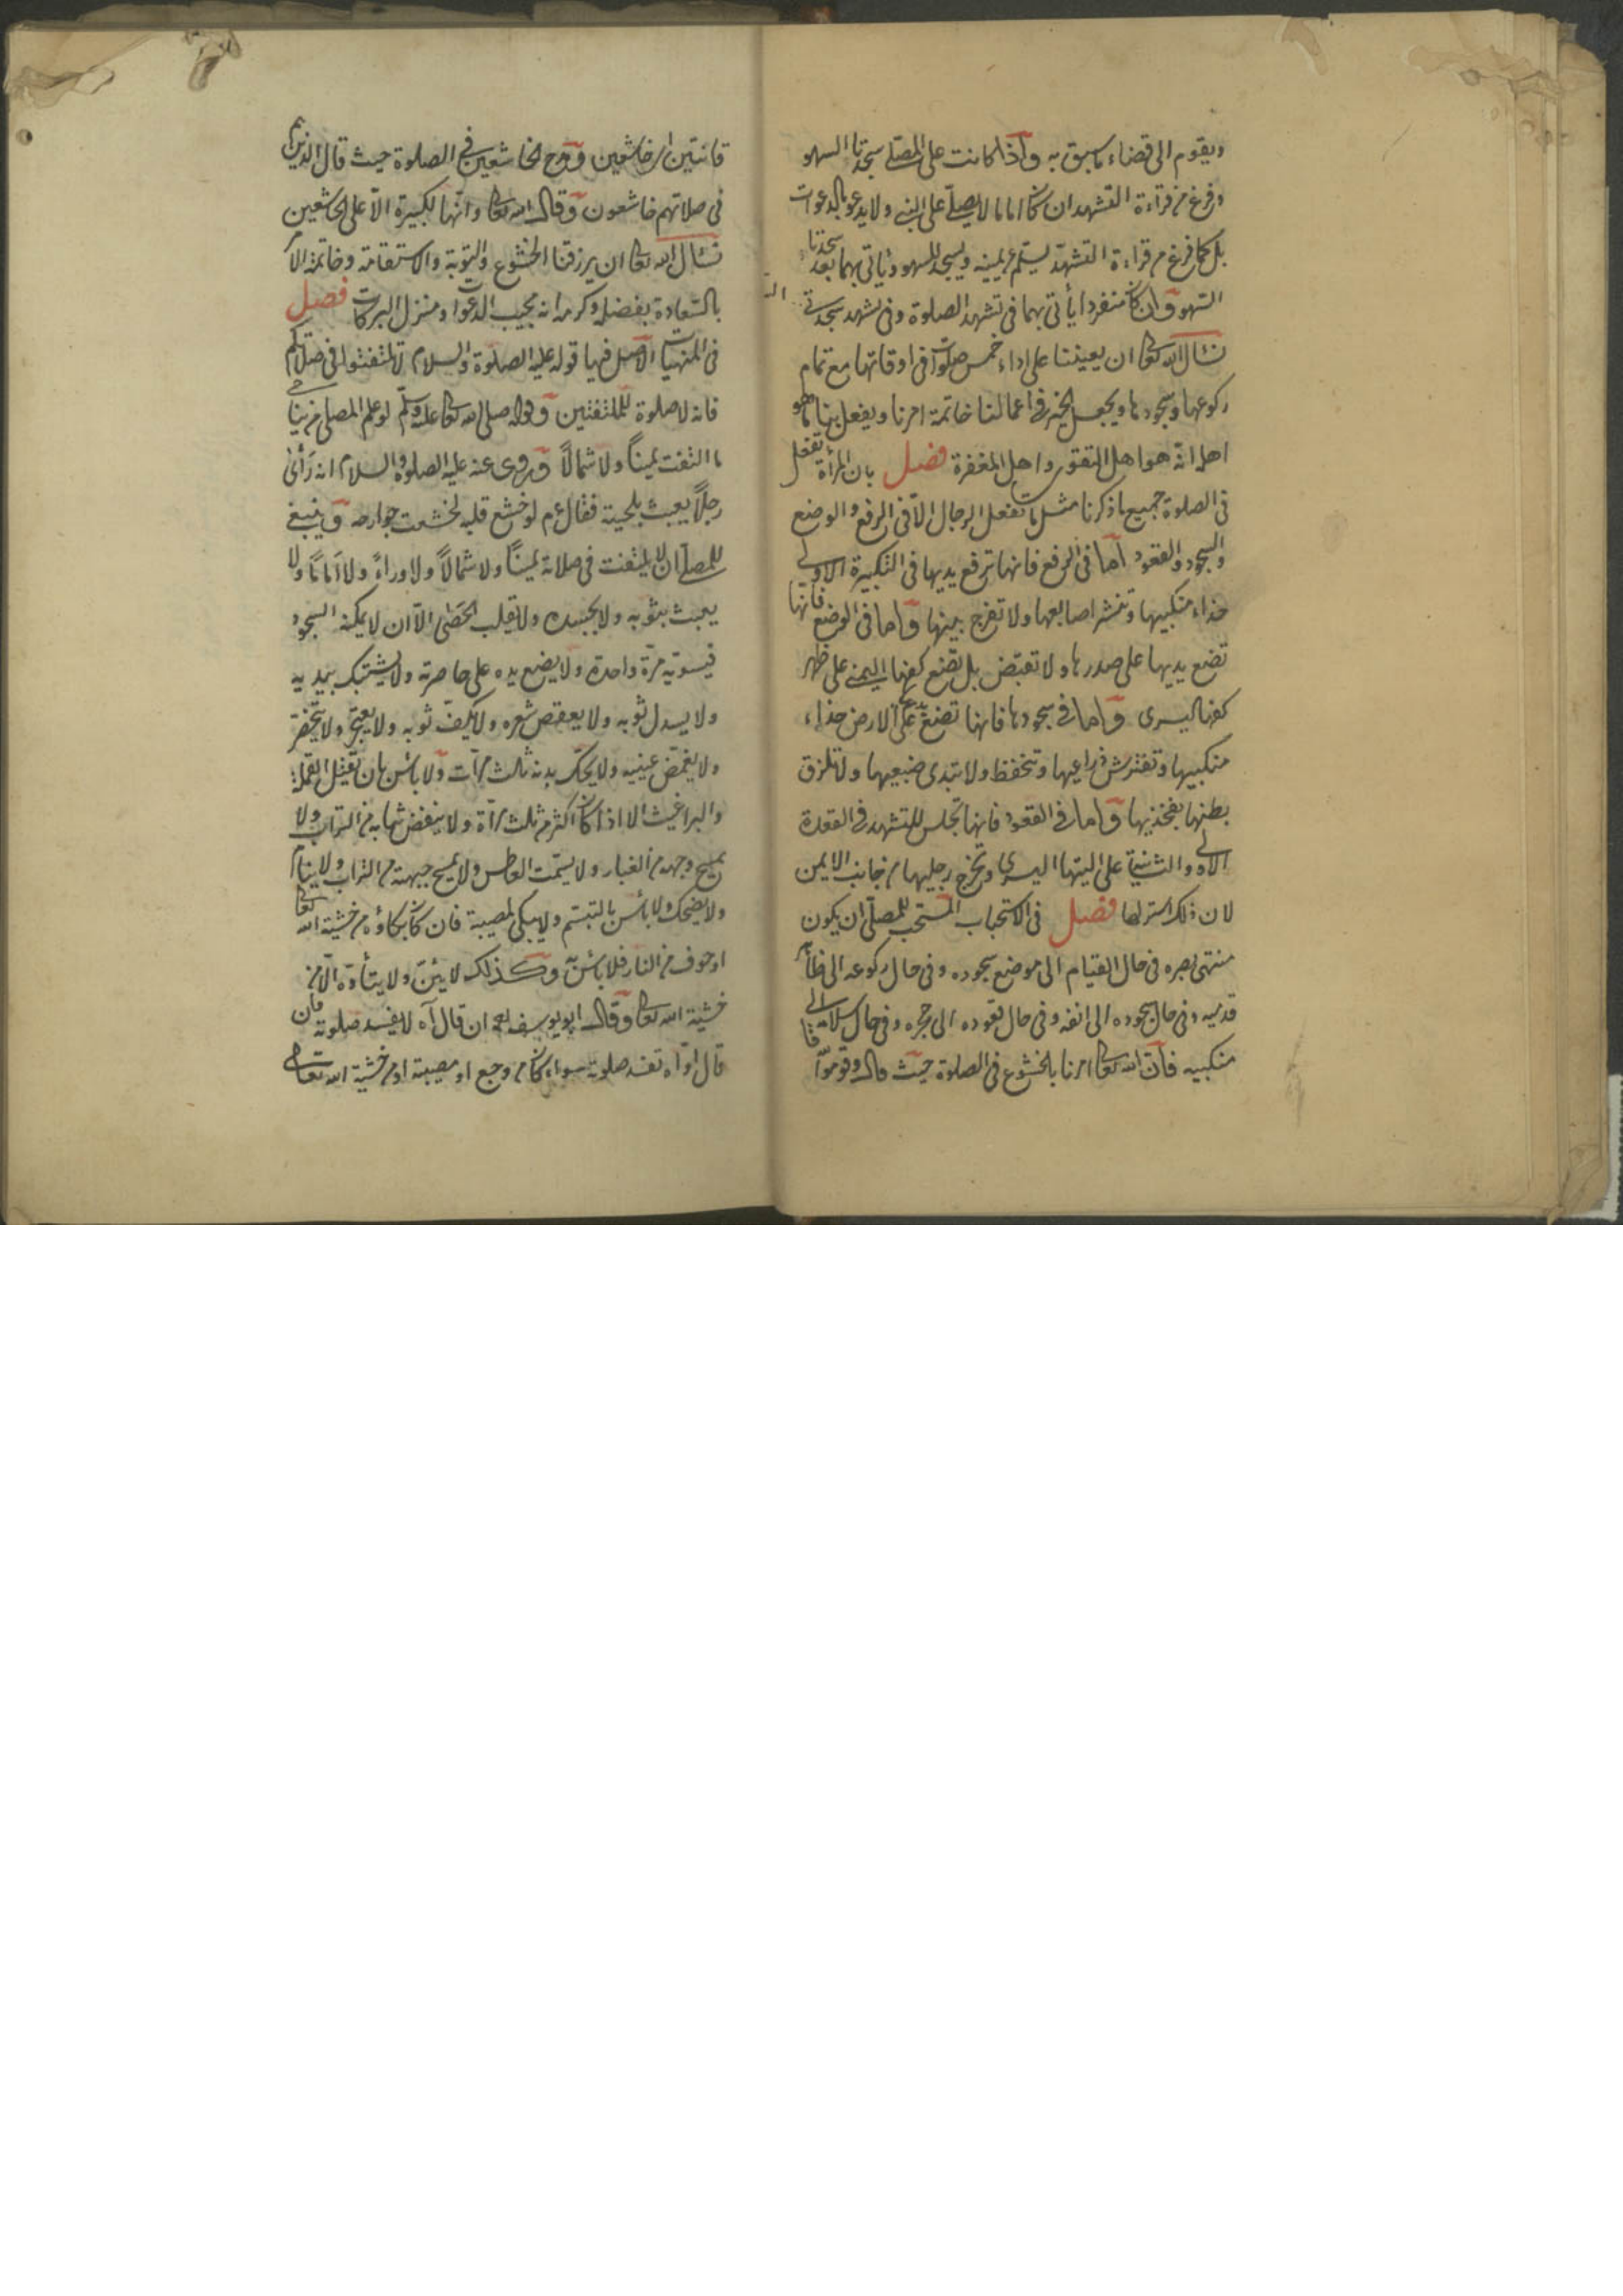 ويقوم الى قضاء ما سبق به واذا كانت على المصلى سجدتا السهو
وفرغ من قراءة التشهد ان كان اماما لا يصلى على النبى ولا يدعو بالدعوات
بل كما فرغ من قراءة التشهد يسلم عن يمينه ويسجد للسهو ويأتى بهما بعد سجدتا
السهو وان كان منفردا يأتى بهما فى تشهد الصلوة وفى تشهد سجدتى
نسأل الله تعالى ان يعيننا على اداء خمس صلوات فى اوقاتها مع تمام
ركوعها وسجودها ويجعل الخير فى اعمالنا خاتمة امرنا ويفعل بنا ما هو
اهله انه هو اهل التقوى واهل المغفرة فصل بان المرأة تفعل
فى الصلوة جميع ما ذكرنا مثل ما تفعل الرجال الا فى الرفع والوضع
والسجود والقعود اما فى الرفع فانها ترفع يديها فى التكبيرة الاولى
حذاء منكبيها وتنشر اصابعها ولا تفرج بينها واما فى الوضع فانها
تضع يديها على صدرها ولا تقبض بل تضع كفها اليمنى على ظهر
كفها اليسرى واما فى سجودها فانها تضع يديها على الارض حذاء
منكبيها وتفترش ذراعيها وتنخفظ ولا تبدى ضبعيها وتلزق
بطنها بفخذيها واما فى القعود فانها تجلس للتشهد فى القعدة
الاولى والثانية على اليتها اليسرى وتخرج رجليها من جانب الايمن
لان ذلك استر لها فصل فى الاستحباب المستحب للمصلى ان يكون
منتهى بصره فى حال القيام الى موضع سجوده وفى حال ركوعه الى ظاهر
قدميه وفى حال سجوده الى انفه وفى حال قعوده الى حجره وفى حال سلامه الى
منكبيه فان الله تعالى امرنا بالخشوع فى الصلوة حيث قال وقوموا
قانتين اى خاشعين ومدح الخاشعين فى الصلوة حيث قال الذين هم
فى صلاتهم خاشعون وقال الله تعالى وانها لكبيرة الا على الخاشعين
نسأل الله تعالى ان يرزقنا الخشوع والتوبة والاستقامة وخاتمة الامر
بالسعادة بفضله وكرمه انه مجيب الدعوات ومنزل البركات فصل
فى المنهيات الاصل فيها قوله عليه الصلوة والسلام لا تلتفتوا فى صلاتكم
فانه لا صلوة للملتفتين وقوله صلى الله تعالى عليه وسلم لو علم المصلى من يناجى
ما التفت يمينا ولا شمالا وروى عنه عليه الصلوة والسلام انه رأى
رجلا يعبث بلحيته فقال عم لو خشع قلبه لخشعت جوارحه وينبغى
للمصلى ان لا يلتفت فى صلاته يمينا ولا شمالا ولا وراء ولا اماما ولا
يعبث بثوبه ولا بجسده ولا يقلب الحصى الا ان لا يمكنه السجود
فيسويه مرة واحدة ولا يضع يده على خاصرته ولا يشتبك بيديه
ولا يسدل ثوبه ولا يعقص شعره ولا يكف ثوبه ولا يعتجر ولا يتخصر
ولا يغمض عينيه ولا يحك بدنه ثلث مرات ولا بأس بان تقتل القملة
والبراغيث الا اذا كان اكثر من ثلث مرة ولا ينفض ثيابه من التراب ولا
يمسح وجهه من الغبار ولا يشمت العاطس ولا يمسح جبهته من التراب ولا ينام
ولا يضحك ولا بأس بالتبسم ولا يبكى لمصيبة فان كان بكاؤه من خشية الله تعالى
او خوف من النار فلا بأس وكذلك لا يئن ولا يتأوه الا من
خشية الله تعالى وقال ابو يوسف رحمه ان قال آه لا يفسد صلوته فان
قال اوّاه تفسد صلوته سواء كان من وجع او مصيبة او من خشية الله تعالى